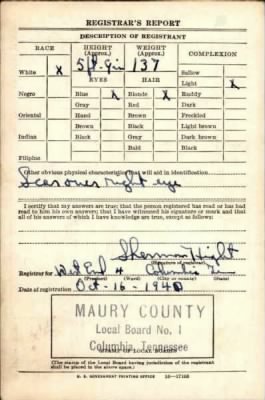 REGISTRAR'S REPORT
DESCRIPTION OF REGISTRANT
RACE HEIGHT (Approx.) WEIGHT (Approx.) COMPLEXION
5 ft 9 in 137 Sallow
White X EYES HAIR Light X
Negro Blue X Blonde X Ruddy
Gray Red Dark
Oriental Hazel Brown Freckled
Brown Black Light brown
Indian Black Gray Dark brown
Bald Black
Filipino
Other obvious physical characteristics that will aid in identification
Scar over right eye
I certify that my answers are true; that the person registered has read or has had
read to him his own answers; that I have witnessed his signature or mark and that
all of his answers of which I have knowledge are true, except as follows:
Sherman Hight
(Signature of registrar)
Registrar for West End 4 Columbia Tenn
(Precinct) (Ward) (City or county) (State)
Date of registration Oct-16-1940
MAURY COUNTY
Local Board No. 1
Columbia, Tennessee
(STAMP OF LOCAL BOARD)
(The stamp of the Local Board having jurisdiction of the registrant
shall be placed in the above space.)
U. S. GOVERNMENT PRINTING OFFICE 16—17105